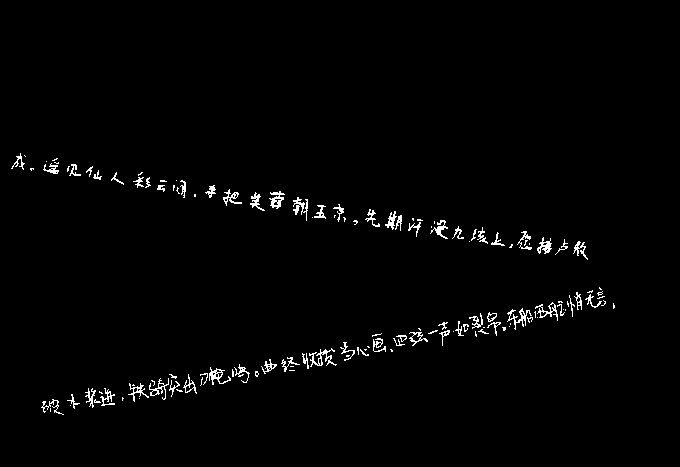 成。遥见仙人彩云间，手把芙蓉朝玉京。先期汗漫九垓上，愿接卢敖
破水浆迸，铁骑突出刀枪鸣。曲终收拨当心画，四弦一声如裂帛。东船西舫悄无言，